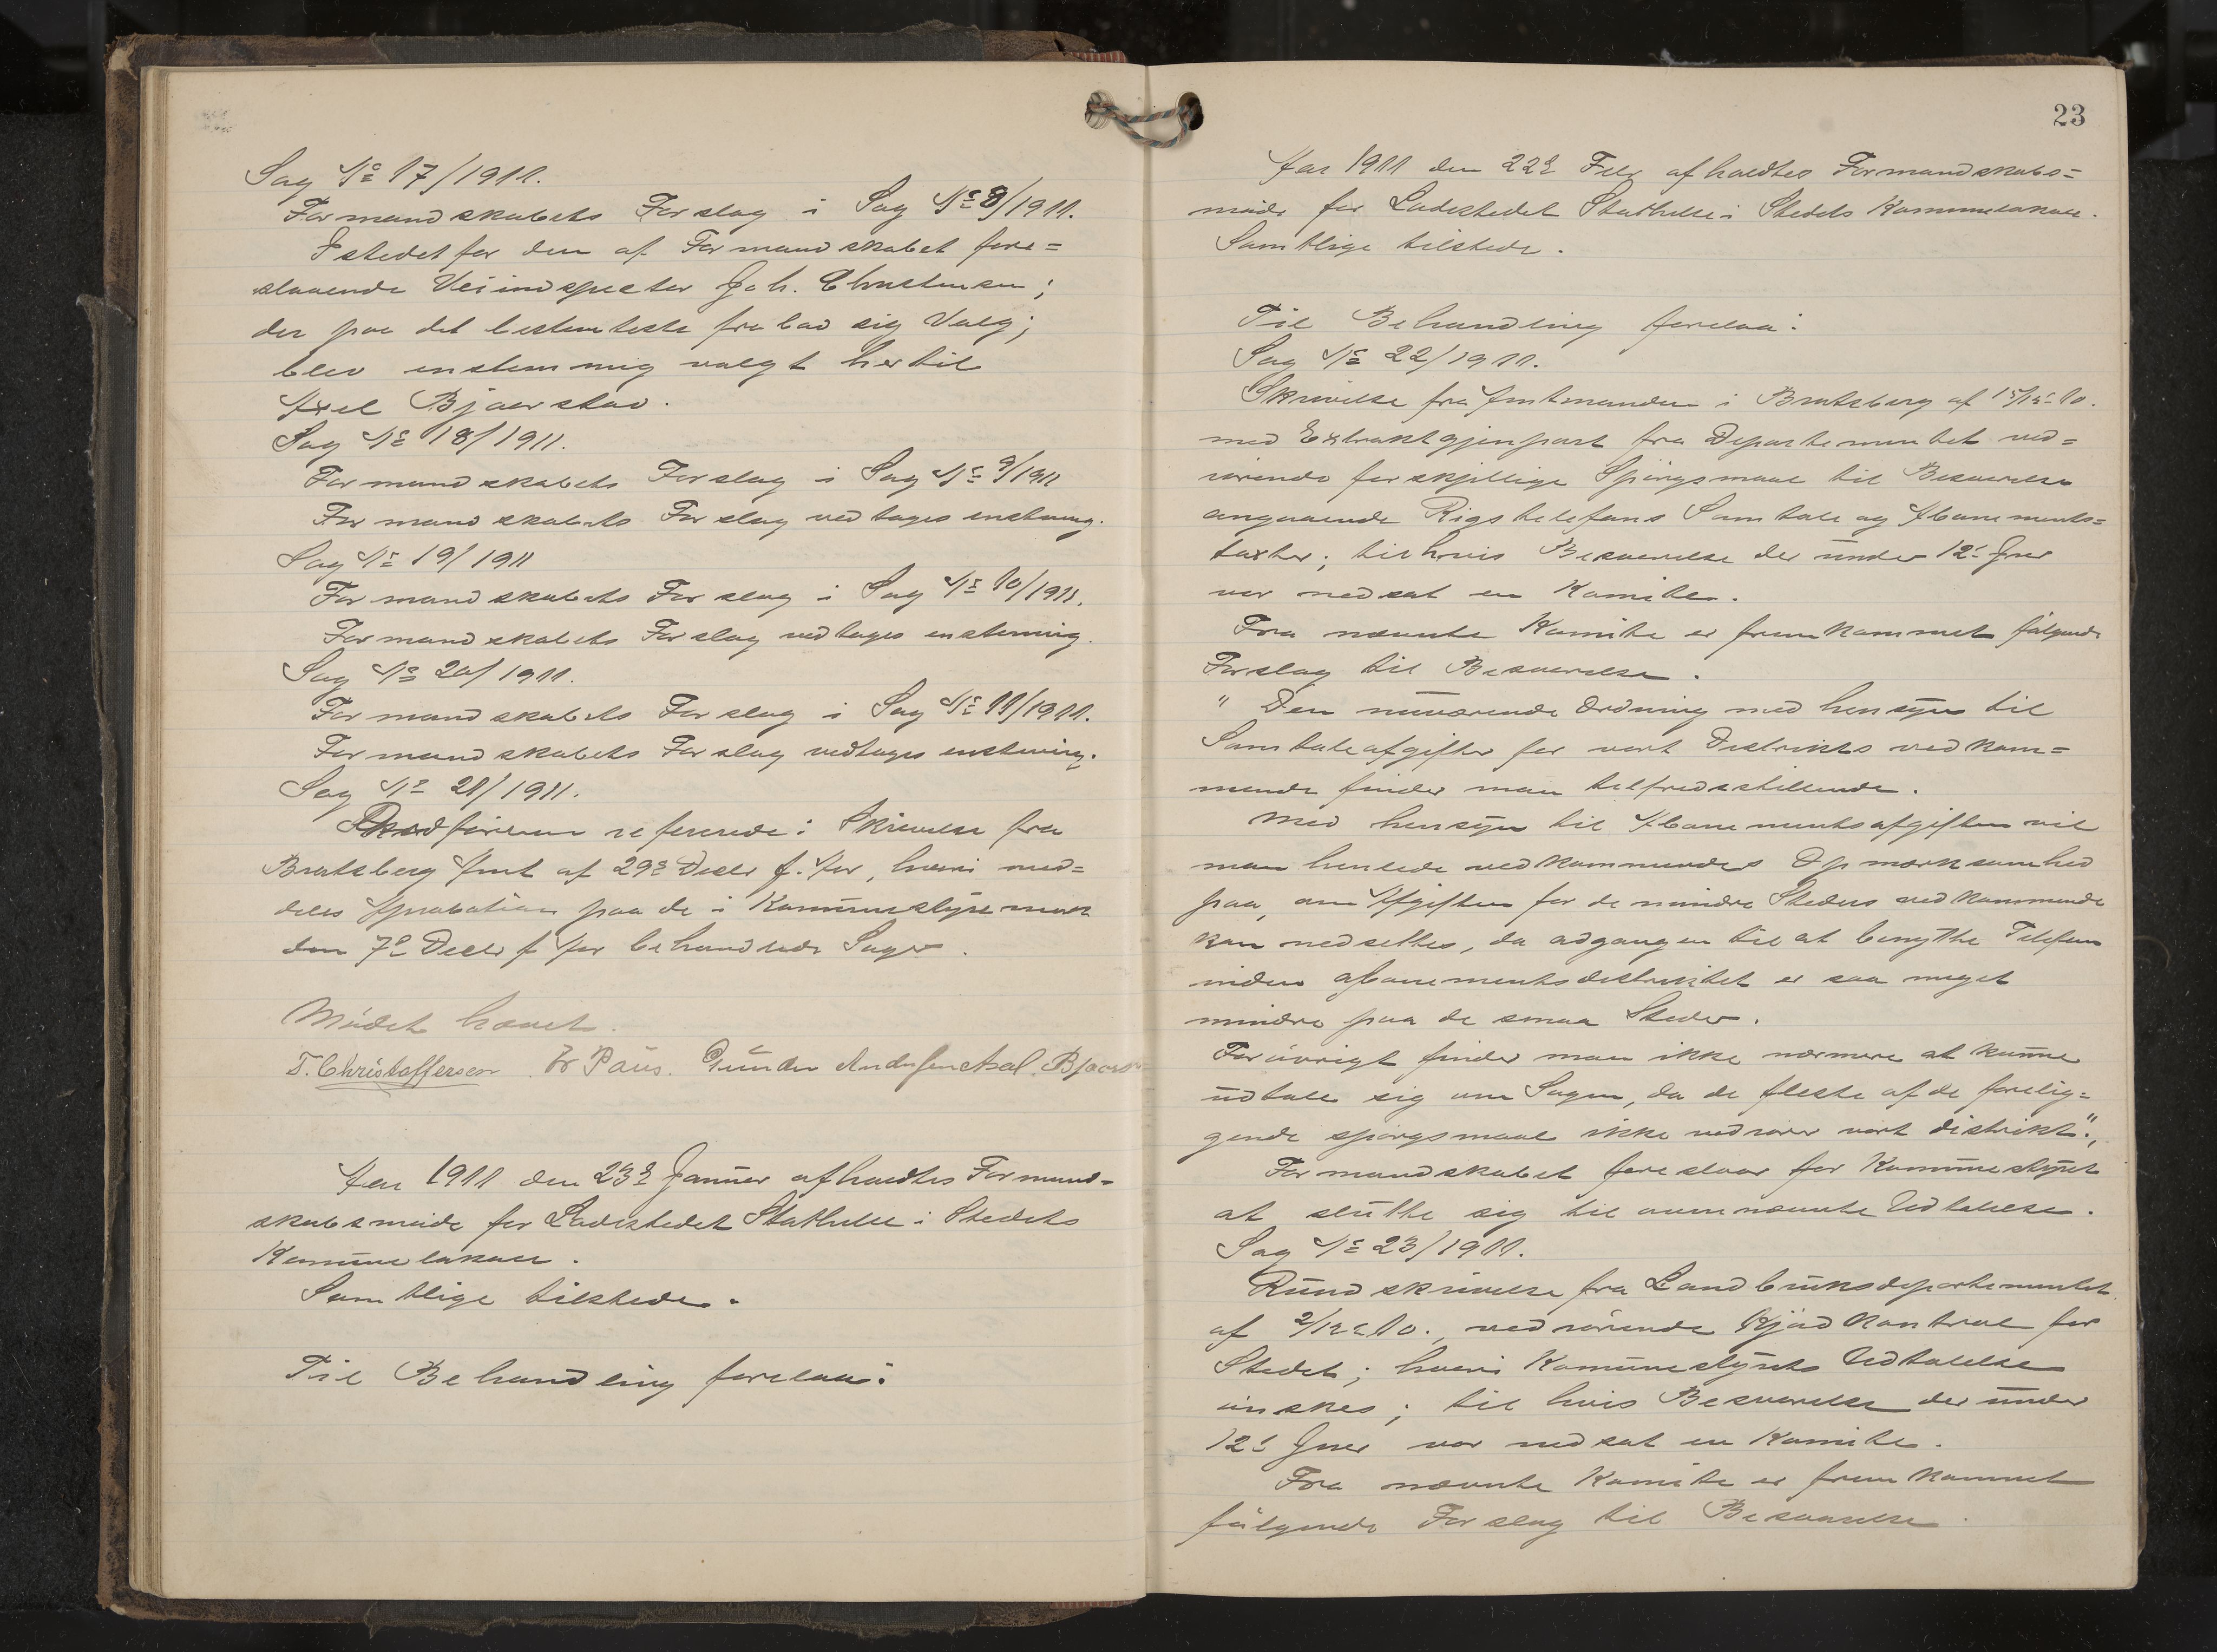 Sag No 17/1911.
Formandskabets Forslag i Sag No 8/1911.
Istedetfor den af Formandskabet fore=
slaaende Veiindspectør Joh. Christensen;
der paa det bestemteste frabad sig Valg;
blev enstemmig valgt hertil
Axel Bjaerstad.
Sag No 18/1911.
Formandskabets Forslag i Sag No 9/1911
Formandskabets Forslag vedtages enstemmig.
Sag No 19/1911
Formandskabets Forslag i Sag No 10/1911.
Formandskabets Forslag vedtages enstemmig.
Sag No 20/1911.
Formandskabets Forslag i Sag No 11/1911.
Formandskabets Forslag vedtages enstemmig.
Sag No 21/1911.
Ordføreren refererede: Skrivelse fra
Bratsberg Amt af 29de Decbr f. Aar, hvori med=
deles Aprobation paa de i Kommunestyremøde
den 7de Decbr f Aar behandlede Sager.
Mødet hævet.
T. Christoffersen Paus. Gunder Andersen Axel Bjaerstad
Aar 1911 den 23de Januar afholdtes Formand=
skabsmøde for Ladestedet Stathelle i Stedets
Kommunelokale.
Samtlige tilstede.
Til Behandling forelaa:
23
Aar 1911 den 22de Febr afholdtes Formandskabs=
møde for Ladestedet Stathelle i Stedets Kommunelokale.
Samtlige tilstede.
Til Behandling forelaa:
Sag No 22/1911.
Skrivelse fra Amtmanden i Bratsberg af 15/12-10.
med Extraktgjenpart fra Departementet ved=
rørende forskjellige Spørgsmaal til Besvarelse
angaaende Rigstelefons Samtale og Abonements=
taxter; til hvis Besvarelse der under 12te Jnar
var nedsat en Komite.
Fra nævnte Komite er fremkommet følgende
Forslag til Besvarelse.
" Den nuværende Ordning med hensyn til
Samtaleafgifter for vort Distrikts vedkom=
mende finder man tilfredsstillende.
Med hensyn til Abonementsafgiften vil
man henlede vedkommendes Opmærksomhed
paa, om Afgiften for de mindre Steders vedkommende
kan nedsettes, da adgangen til at benytte Telefon
inden abonementsdistriktet er saa meget
mindre paa de smaa Steder.
Forøvrigt finder man ikke nærmere at kunne
udtale sig om Sagen, da de fleste af de forelig=
gende spørgsmaal ikke vedrører vort distrikt".,
Formandskabet foreslaar for Kommunestyret
at slutte sig til ovennævnte Udtalelse.
Sag No 23/1911.
Rundskrivelse fra Landbruksdepartementet
af 2/12-10., vedrørende Kjødkontrol for
Stedet; hvori Kommunestyrets Udtalelse
ønskes; til hvis Besvarelse der under
12te Jnar var nedsat en Komite.
Fra nævnte Komite er fremkommet
følgende Forslag til Besvarelse.